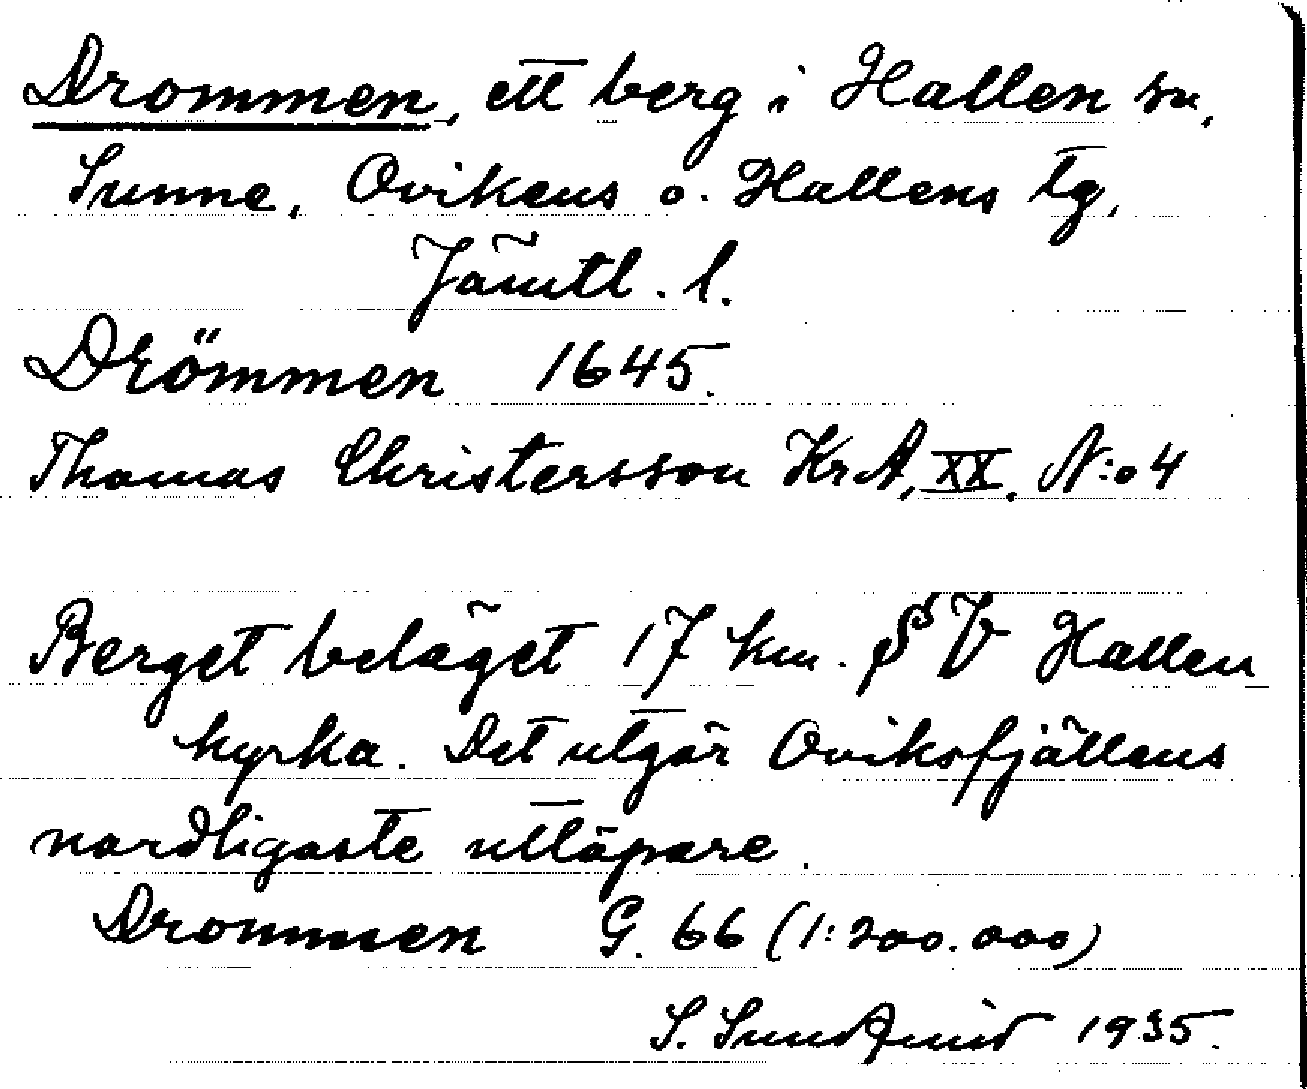 Drommen, ett berg i Hallen sn,
Sunne, Ovikens o. Hallens tg,
Jämtl. l.
Drömmen 1645.
Thomas Christersson KrA, XX. N:o 4
Berget beläget 17 km. SV Hallen
kyrka. Det utgör Oviksfjällens
nordligaste utlöpare.
Drommen G. 66 (1:200.000)
S. Sundqvist 1935.